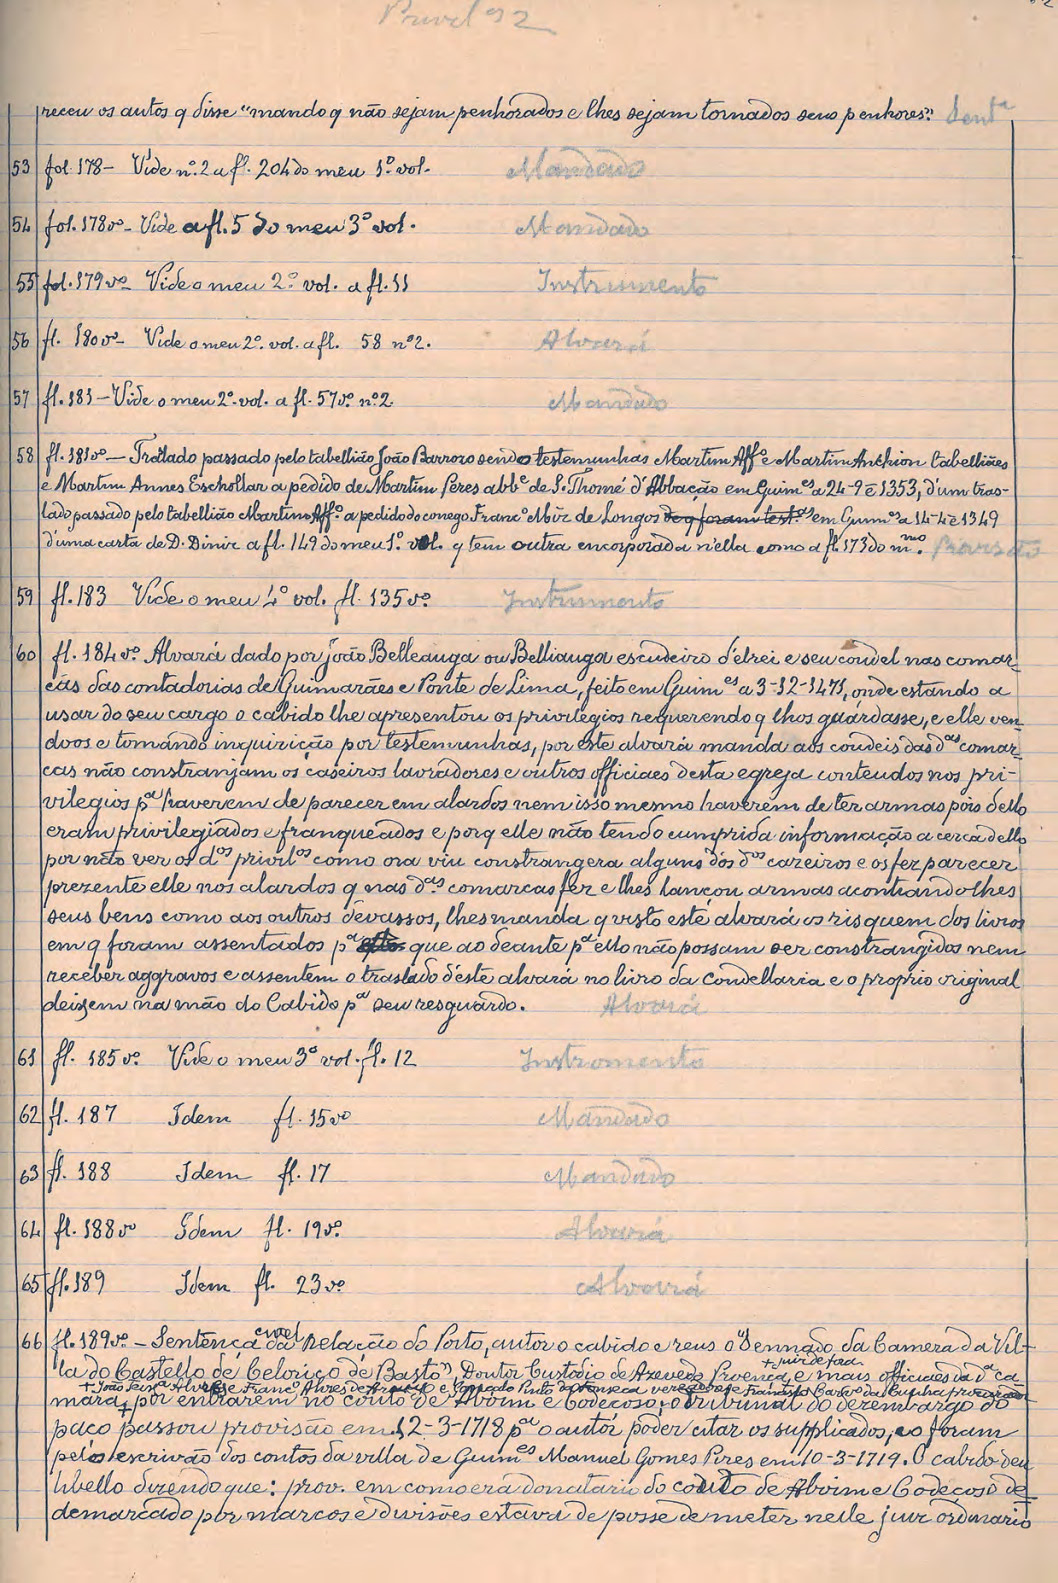 Privil os 2
receu os autos q disse "mando q não sejam penhorados e lhes sejam tornados seus penhores". Sent ª
53 fol. 178 - Vide nº. 2 a fl. 204 do meu 1º vol. Mandado
54 fol. 178 vº - Vide a fl. 5 do meu 3º vol. Mandado
55 fol. 179 vº - Vide o meu 2º vol. a fl. 11 Instrumento
56 fl. 180 vº - Vide o meu 2º. vol. a fl. 58 nº 2. Alvará
57 fl. 181 - Vide o meu 2º. vol. a fl. 57 vº. nº. 2 Mandado
58 fl. 181 vº - Tratado passado pelo tabellião João Barrozo sendo testemunhas Martim Affº e Martim Anchion tabelliães
e Martim Annes Eschollar a pedido de Martim Peres abbe de S. Thomé d'Abbação em Guim.es a 24-9-1353, d'um tras-
lado passado pelo tabellião Martim Affº a pedido do conego Francº Miz de Longos de q foram test.as em Guim.es a 14-4-1349
d'uma carta de D. Diniz a fl. 149 do meu 1º. vol. q tem outra encorporada n'ella como a fl. 173 do mmo. Provisão
59 fl. 183 Vide o meu 4º vol. fl. 135 vº. Instrumento
60 fl. 184 vº. Alvará dado por João Belleauga ou Bellianga escudeiro d'elrei e seu coudel nas comar-
cas das contadorias de Guimarães e Ponte de Lima, feito em Guim.es a 3-12-1471, onde estando a
usar do seu cargo o cabido lhe apresentou os privilegios requerendo q lhos guardasse, e elle ven-
doos e tomando inquirição por testemunhas, por este alvará manda aos coudeis das d.as comar-
cas não constranjam os caseiros lavradores e outros officiaes desta egreja conteudos nos pri-
vilegios pª haverem de parecer em alardos nem isso mesmo haverem de ter armas pois dello
eram privilegiados e franqueados e porq elle não tendo cumprida informação a cerca dello
por não ver os d.os privil.os como ora viu constrangera alguns dos d.os cazeiros e os fez parecer
prezente elle nos alardos q nas d.as comarcas fez e lhes lançou armas acontiando lhes
seus bens como aos outros devassos, lhes manda q visto este alvará os risquem dos livros
em q foram assentados pª que ao deante pª ello não possam ser constrangidos nem
receber aggravos e assentem o traslado d'este alvará no livro da coudellaria e o proprio original
deixem na mão do Cabido pª seu resguardo. Alvará
61 fl. 185 vº. Vide o meu 3º vol. fl. 12 Instromento
62 fl. 187 Idem fl. 15 vº Mandado
63 fl. 188 Idem fl. 17 Mandado
64 fl. 188 vº Idem fl. 19 vº. Alvará
65 fl. 189 Idem fl. 23 vº Alvará
66 fl. 189 vº. - Sentença civel da Relação do Porto, autor o cabido e reus o "Sennado da Camera da Vil-
la do Castello de Celorico de Basto", Doutor Custodio de Azevedo Proença + juiz de fora e mais officiaes da d.ª ca-
+ João Alvres e Franc.º Alvres de Araujo e Gonçalo Pinto da Fonseca vereadores e Francisco Carvº da Cunha procurador
mara, + por entrarem no couto de Aboim e Codeçoso, o Tribunal do dezembargo do
paço passou provisão em 12-3-1718 pª o autor poder citar os supplicados, e o foram
pelo escrivão dos contos da villa de Guim.es Manuel Gomes Pires em 10-3-1719. O cabido deu
libello dizendo que: prov. em como era donatario do couto de Aboim e Codeçoso de-
demarcado por marcos e divisões estava de posse de meter nelle juiz ordinario